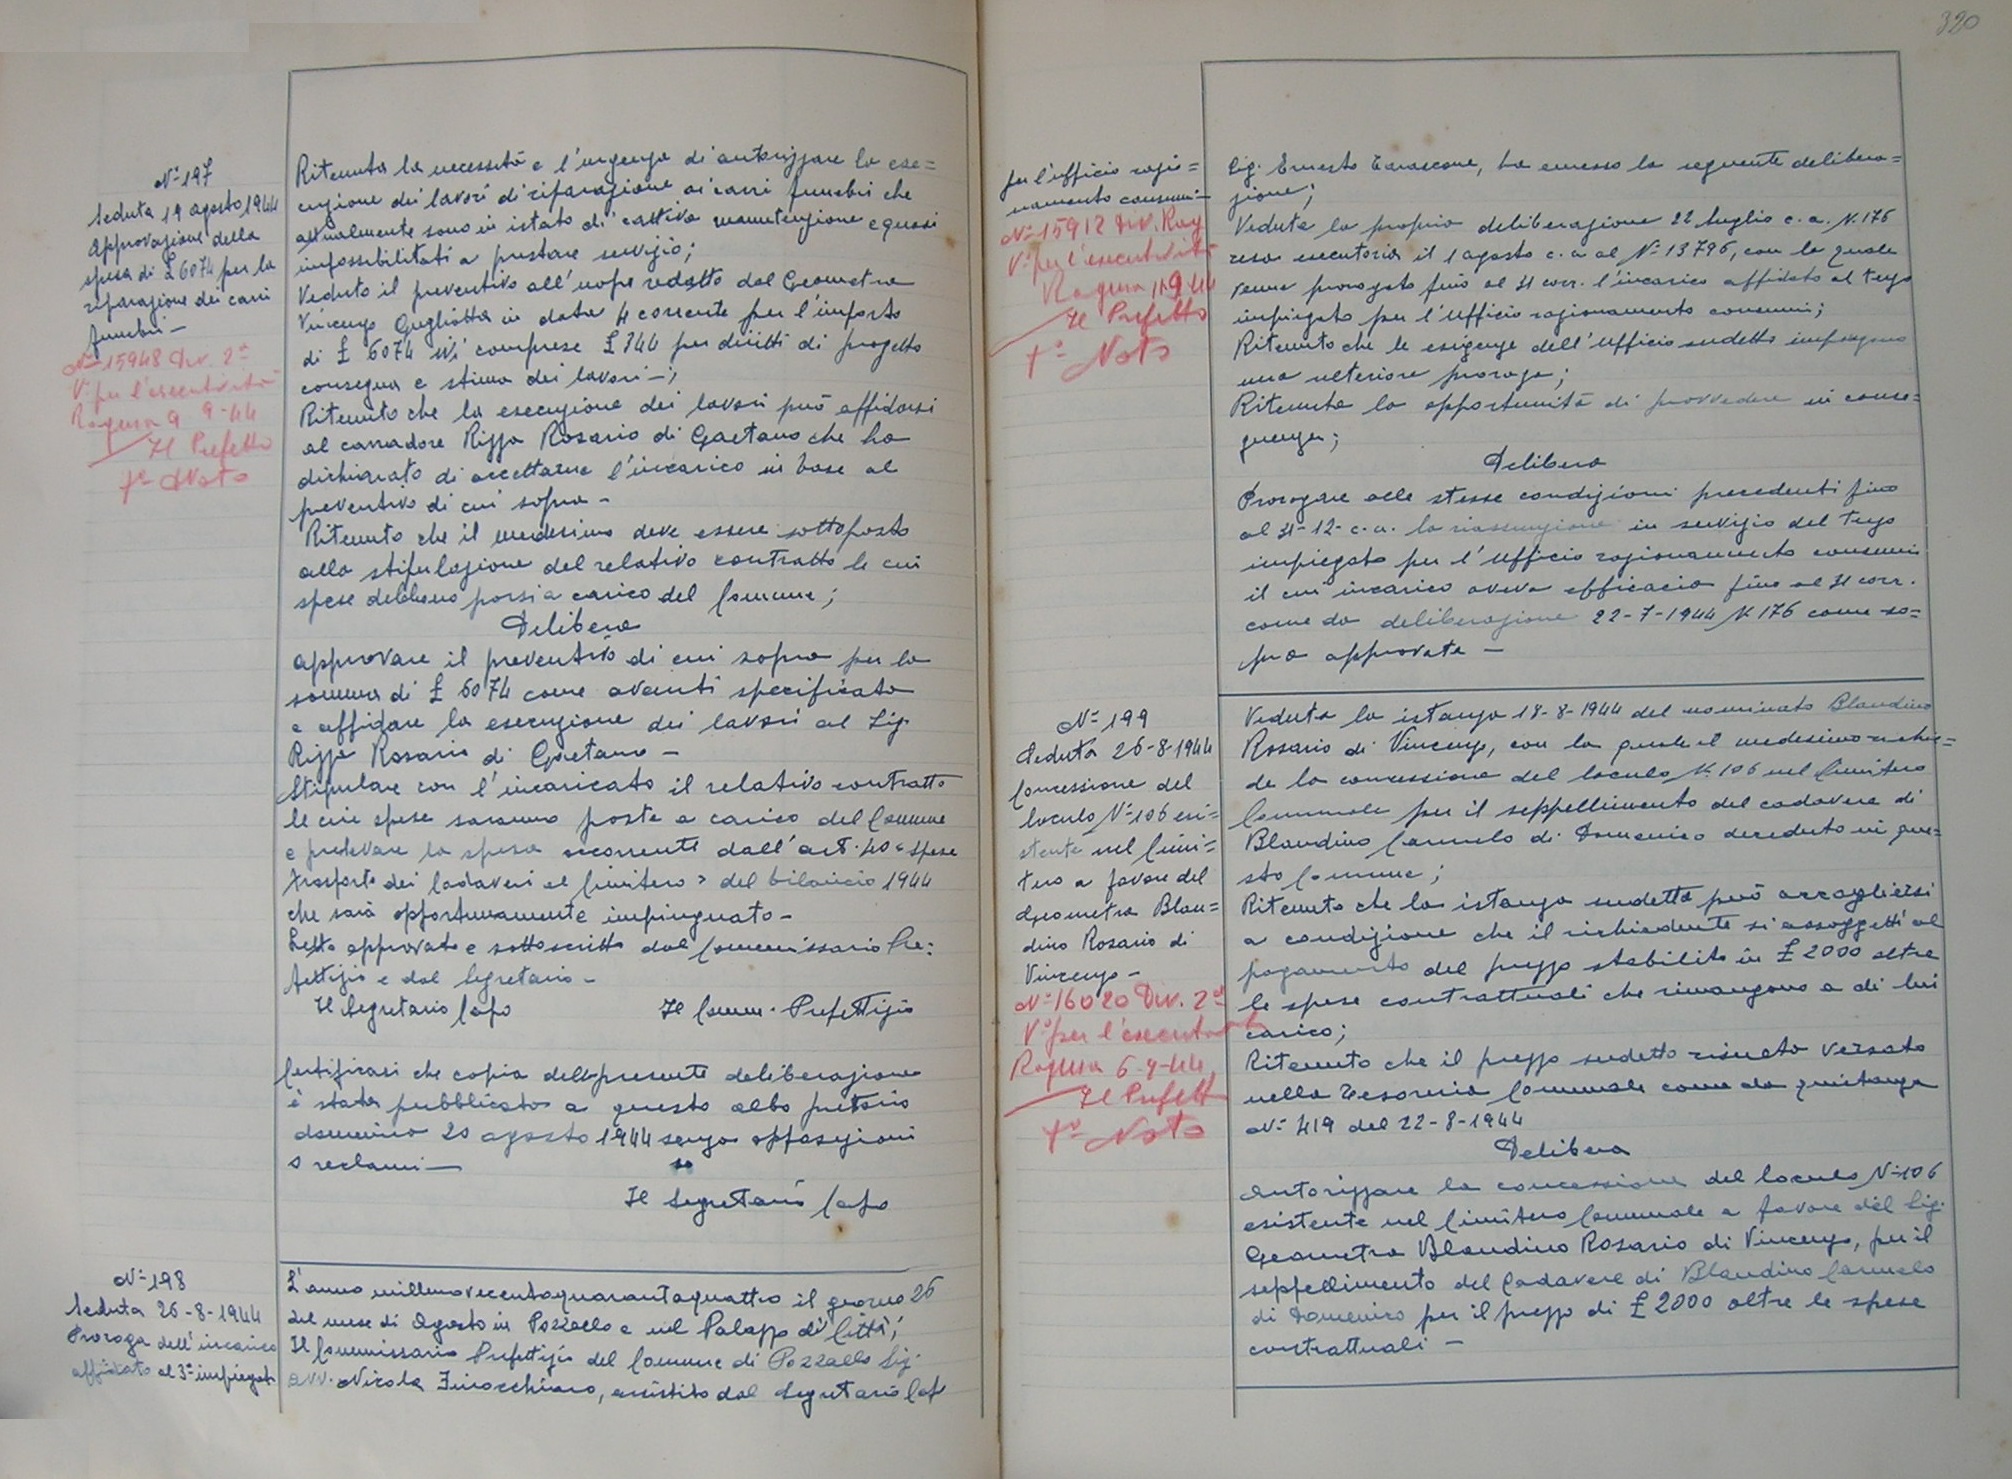 N° 197
Seduta 19 agosto 1944
Approvazione della
spesa di £ 6074 per la
riparazione dei carri
funebri –
N° 15948 Div. 2ª
V° per l'esecutività
Ragusa 9 9-44
Il Prefetto
fº Noto
Ritenuta la necessità e l'urgenza di autorizzare la ese=
cuzione dei lavori di riparazione ai carri funebri che
attualmente sono in istato di cattiva manutenzione e quasi
impossibilitati a prestare servizio;
Veduto il preventivo all'uopo redatto dal Geometra
Vincenzo Gugliotta in data 4 corrente per l'importo
di £ 6074 ivi comprese £ 344 per diritti di progetto
consegna e stima dei lavori –;
Ritenuto che la esecuzione dei lavori può affidarsi
al carradore Rizza Rosario di Gaetano che ha
dichiarato di accettarne l'incarico in base al
preventivo di cui sopra –
Ritenuto che il medesimo deve essere sottoposto
alla stipulazione del relativo contratto le cui
spese debbono porsi a carico del Comune;
Delibera
approvare il preventivo di cui sopra per la
somma di £ 6074 come avanti specificato
e affidare la esecuzione dei lavori al Sig.
Rizza Rosario di Gaetano –
Stipulare con l'incaricato il relativo contratto
le cui spese saranno poste a carico del Comune
e prelevare la spesa occorrente dall'art. 40 « spese
trasporto dei Cadaveri al Cimitero » del bilancio 1944
che sarà opportunamente impinguato –
Letto approvato e sottoscritto dal Commissario Pre=
fettizio e dal Segretario –
Il Segretario Capo Il Comm. Prefettizio
Certificasi che copia della presente deliberazione
è stata pubblicata a questo albo pretorio
domenica 20 agosto 1944 senza opposizioni
o reclami –
Il Segretario Capo
N° 198
Seduta 26-8-1944
Proroga dell'incarico
affidato al 3° impiegato
L'anno millenovecentoquarantaquattro il giorno 26
del mese di Agosto in Pozzallo e nel Palazzo di Città;
Il Commissario Prefettizio del Comune di Pozzallo Sig.
avv. Nicola Finocchiaro, assistito dal Segretario Capo
320
per l'ufficio razio=
namento consumi –
N° 15912 Div. Rag
V° per l'esecutività
Ragusa 11 9 44
Il Prefetto
fº Noto
Sig. Ernesto Tarascone, ha emesso la seguente delibera=
zione;
Veduta la propria deliberazione 22 luglio c. a. N. 176
resa esecutoria il 1 agosto c. a al N° 13796, con la quale
venne prorogato fino al 31 corr. l'incarico affidato al terzo
impiegato per l'Ufficio razionamento consumi;
Ritenuto che le esigenze dell'Ufficio sudetto impongono
una ulteriore proroga;
Ritenuta la opportunità di provvedere in conse=
guenza;
Delibera
Prorogare alle stesse condizioni precedenti fino
al 31-12-c.a. la riassunzione in servizio del terzo
impiegato per l'Ufficio razionamento consumi
il cui incarico aveva efficacia fino al 31 corr.
come da deliberazione 22-7-1944 N. 176 come so=
pra approvata –
N° 199
Seduta 26-8-1944
Concessione del
loculo N° 106 esi=
stente nel Cimi=
tero a favore del
Geometra Blan=
dino Rosario di
Vincenzo –
N° 16020 Div. 2ª
V° per l'esecutività
Ragusa 6-9-44
Il Prefetto
fº Noto
Veduta la istanza 18-8-1944 del nominato Blandino
Rosario di Vincenzo, con la quale il medesimo richie=
de la concessione del loculo N. 106 nel Cimitero
Comunale per il seppellimento del cadavere di
Blandino Carmelo di Domenico deceduto in que=
sto Comune;
Ritenuto che la istanza sudetta può accogliersi
a condizione che il richiedente si assoggetti al
pagamento del prezzo stabilito in £ 2000 oltre
le spese contrattuali che rimangono a di lui
carico;
Ritenuto che il prezzo sudetto risulta versato
nella Tesoreria Comunale come da quietanza
N° 419 del 22-8-1944
Delibera
Autorizzare la concessione del loculo N° 106
esistente nel Cimitero Comunale a favore del Sig.
Geometra Blandino Rosario di Vincenzo, per il
seppellimento del Cadavere di Blandino Carmelo
di Domenico per il prezzo di £ 2000 oltre le spese
contrattuali –